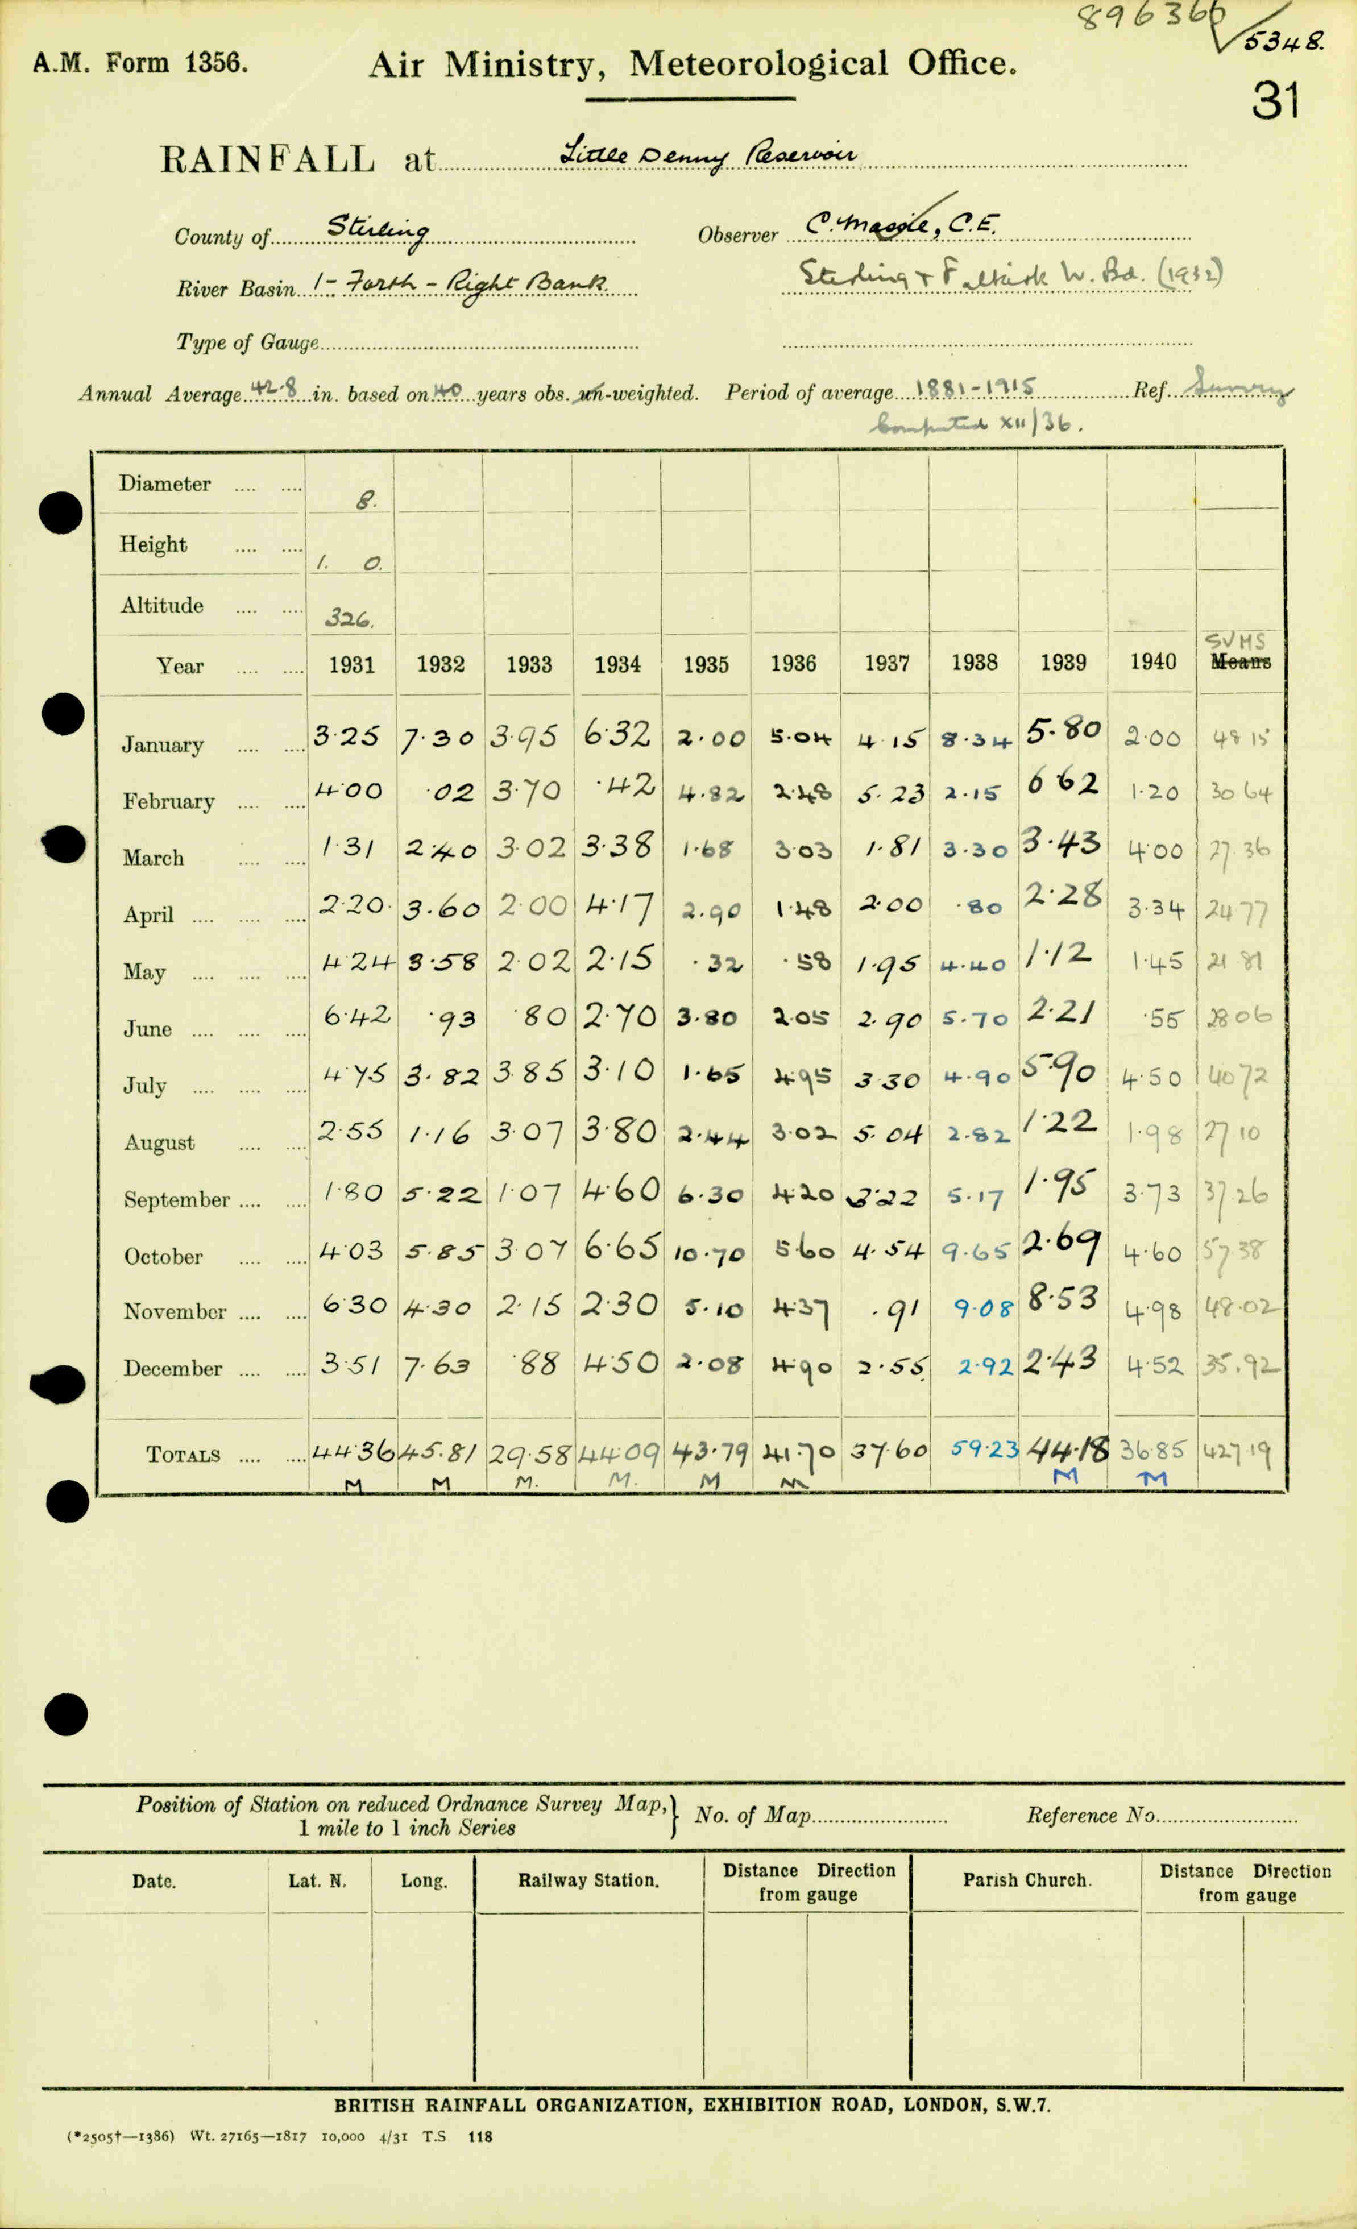 896366
5348.
A.M. Form 1356.
Air Ministry, Meteorological Office.
31
RAINFALL at Little Denny Reservoir
County of Stirling Observer C. Massie, C.E.
River Basin 1- Forth - Right Bank Stirling & Falkirk W. Bd. (1932)
Type of Gauge
Annual Average 42.8 in. based on 40 years obs. un-weighted. Period of average 1881-1915 Ref. Survey
Computed XII/36.
Diameter 8.
Height 1. 0.
Altitude 326.
SUMS
Year 1931 1932 1933 1934 1935 1936 1937 1938 1939 1940 Means
January 3.25 7.30 3.95 6.32 2.00 5.04 4.15 8.34 5.80 2.00 48 15
February 4.00 .02 3.70 .42 4.82 2.48 5.23 2.15 6 62 1.20 30 64
March 1.31 2.40 3.02 3.38 1.68 3.03 1.81 3.30 3.43 4.00 27.36
April 2.20 3.60 2.00 4.17 2.90 1.48 2.00 .80 2.28 3.34 24 77
May 4.24 3.58 2.02 2.15 .32 .58 1.95 4.40 1.12 1.45 21 81
June 6.42 .93 .80 2.70 3.80 2.05 2.90 5.70 2.21 .55 28 06
July 4.75 3.82 3.85 3.10 1.65 4.95 3.30 4.90 5.90 4.50 40 72
August 2.55 1.16 3.07 3.80 2.44 3.02 5.04 2.82 1.22 1.98 27 10
September 1.80 5.22 1.07 4.60 6.30 4.20 3.22 5.17 1.95 3.73 37 26
October 4.03 5.85 3.07 6.65 10.70 5.60 4.54 9.65 2.69 4.60 57 38
November 6.30 4.30 2.15 2.30 5.10 4.37 .91 9.08 8.53 4.98 48.02
December 3.51 7.63 .88 4.50 2.08 4.90 2.55 2.92 2.43 4.52 35.92
TOTALS 44.36 45.81 29.58 44.09 43.79 41.70 37.60 59.23 44.18 36.85 427.19
M M M. M. M M M M
Position of Station on reduced Ordnance Survey Map,} No. of Map Reference No.
1 mile to 1 inch Series
Date. Lat. N. Long. Railway Station. Distance Direction Parish Church. Distance Direction
from gauge from gauge
BRITISH RAINFALL ORGANIZATION, EXHIBITION ROAD, LONDON, S.W.7.
(*2505†—1386) Wt. 27165—1817 10,000 4/31 T.S 118